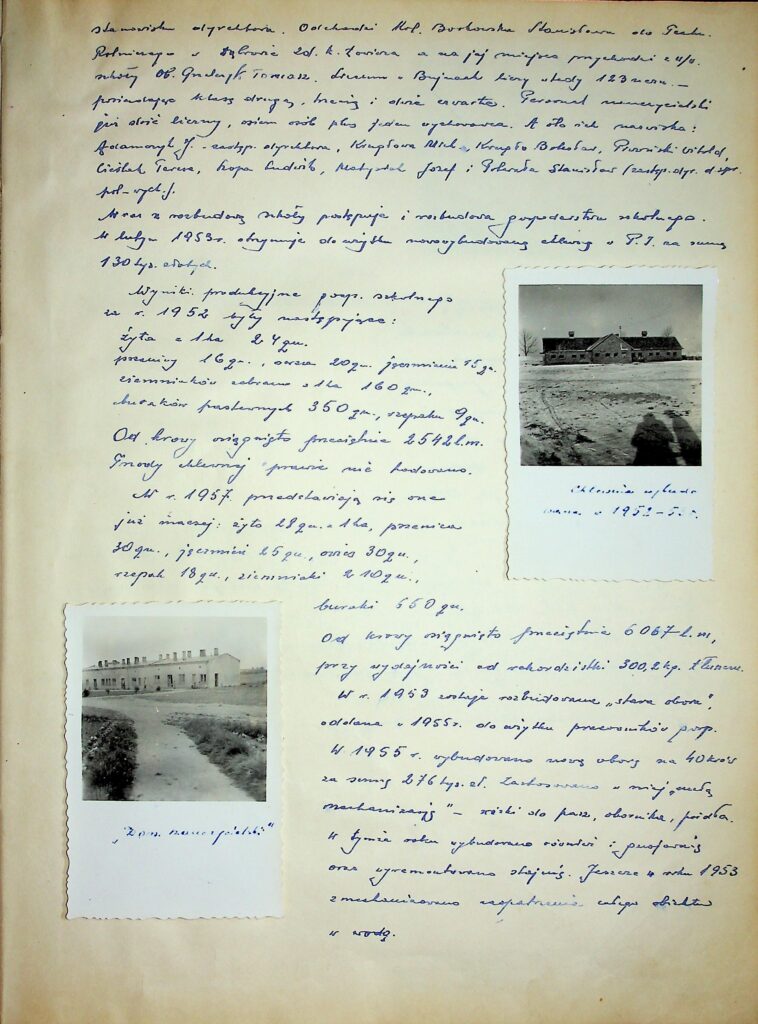 stanowisko dyrektora. Odchodzi Kol. Borkowska Stanisława do Techn.
Rolniczego w Dąbrowie Zd. k. Łowicza a na jej miejsce przychodzi z
szkoły Ob. Tomasz. Liceum w Bujnach liczy wtedy 123 uczn. –
posiadając klasę drugą, trzecią i dwie czwarte. Personel nauczycielski
już dość liczny, osiem osób plus jeden wychowawca. A oto ich nazwiska:
Adamczyk J. – zastęp. dyrektora, Krupłowa Mich., Krupło Bolesław, Witold,
Cieślak Teresa, Ludwik, Matysiak Józef i Stanisław (zastęp. dyr. d/spr.
pol-wych.).
Wraz z rozbudową szkoły postępuje i rozbudowa gospodarstwa szkolnego.
W lutym 1953 r. otrzymuje do użytku nowowybudowaną chlewnię w P. T. za sumę
130 tys. złotych.
Wyniki produkcyjne gosp. szkolnego
za r. 1952 były następujące:
żyta z 1 ha 24 qu.
pszenicy 16 qu., owsa 20 qu. jęczmienia 15 qu.
ziemniaków zebrano z 1 ha 160 qu.,
buraków pastewnych 350 qu., rzepaku 9 qu.
Od krowy osiągnięto przeciętnie 2542 l. m.
Trzody chlewnej prawie nie hodowano.
W r. 1957 przedstawiają się one
już inaczej: żyto 28 qu. z 1 ha, pszenica
30 qu., jęczmień 25 qu., owies 30 qu.,
rzepak 18 qu., ziemniaki 210 qu.,
buraki 550 qu.
Od krowy osiągnięto przeciętnie 6067 l. m,
przy wydajności od rekordzistki 300,2 kg. tłuszczu.
W r. 1953 zostaje rozbudowana „stara obora",
oddana w 1955 r. do użytku pracowników gosp.
W 1955 r. wybudowano nową oborę na 40 krów
za sumę 276 tys. zł. Zastosowano w niej „małą
mechanizację" – wózki do pasz, obornika, poidła.
W tymże roku wybudowano również i gnojownię
oraz wyremontowano stajnię. Jeszcze w roku 1953
zmechanizowano zaopatrzenie całego obiektu
w wodę.
Chlewnia wybudo
wana w 1952-53 r.
„Dom nauczycielski"